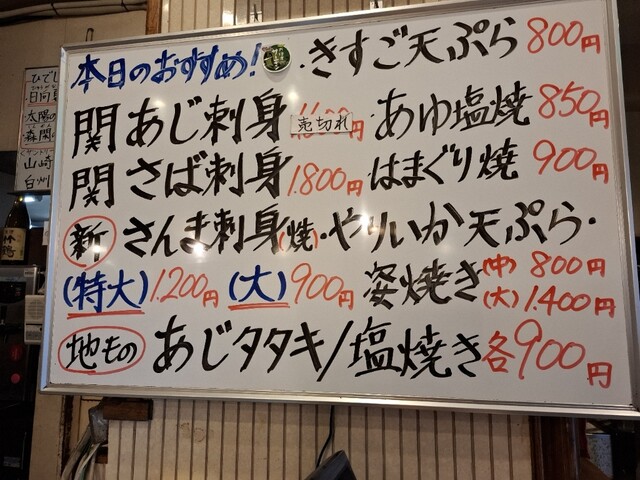 本日のおすすめ!
・きすご天ぷら 800円
関あじ刺身 売切れ
・あゆ塩焼 850円
関さば刺身 1.800円
・はまぐり焼 900円
新 さんま刺身(焼)・やりいか天ぷら・
(特大)1.200円 (大)900円
姿焼き(中)800円
(大)1.400円
地もの あじタタキ/塩焼き各900円
ひでじ
日向
太陽の
森閑
山崎
白州